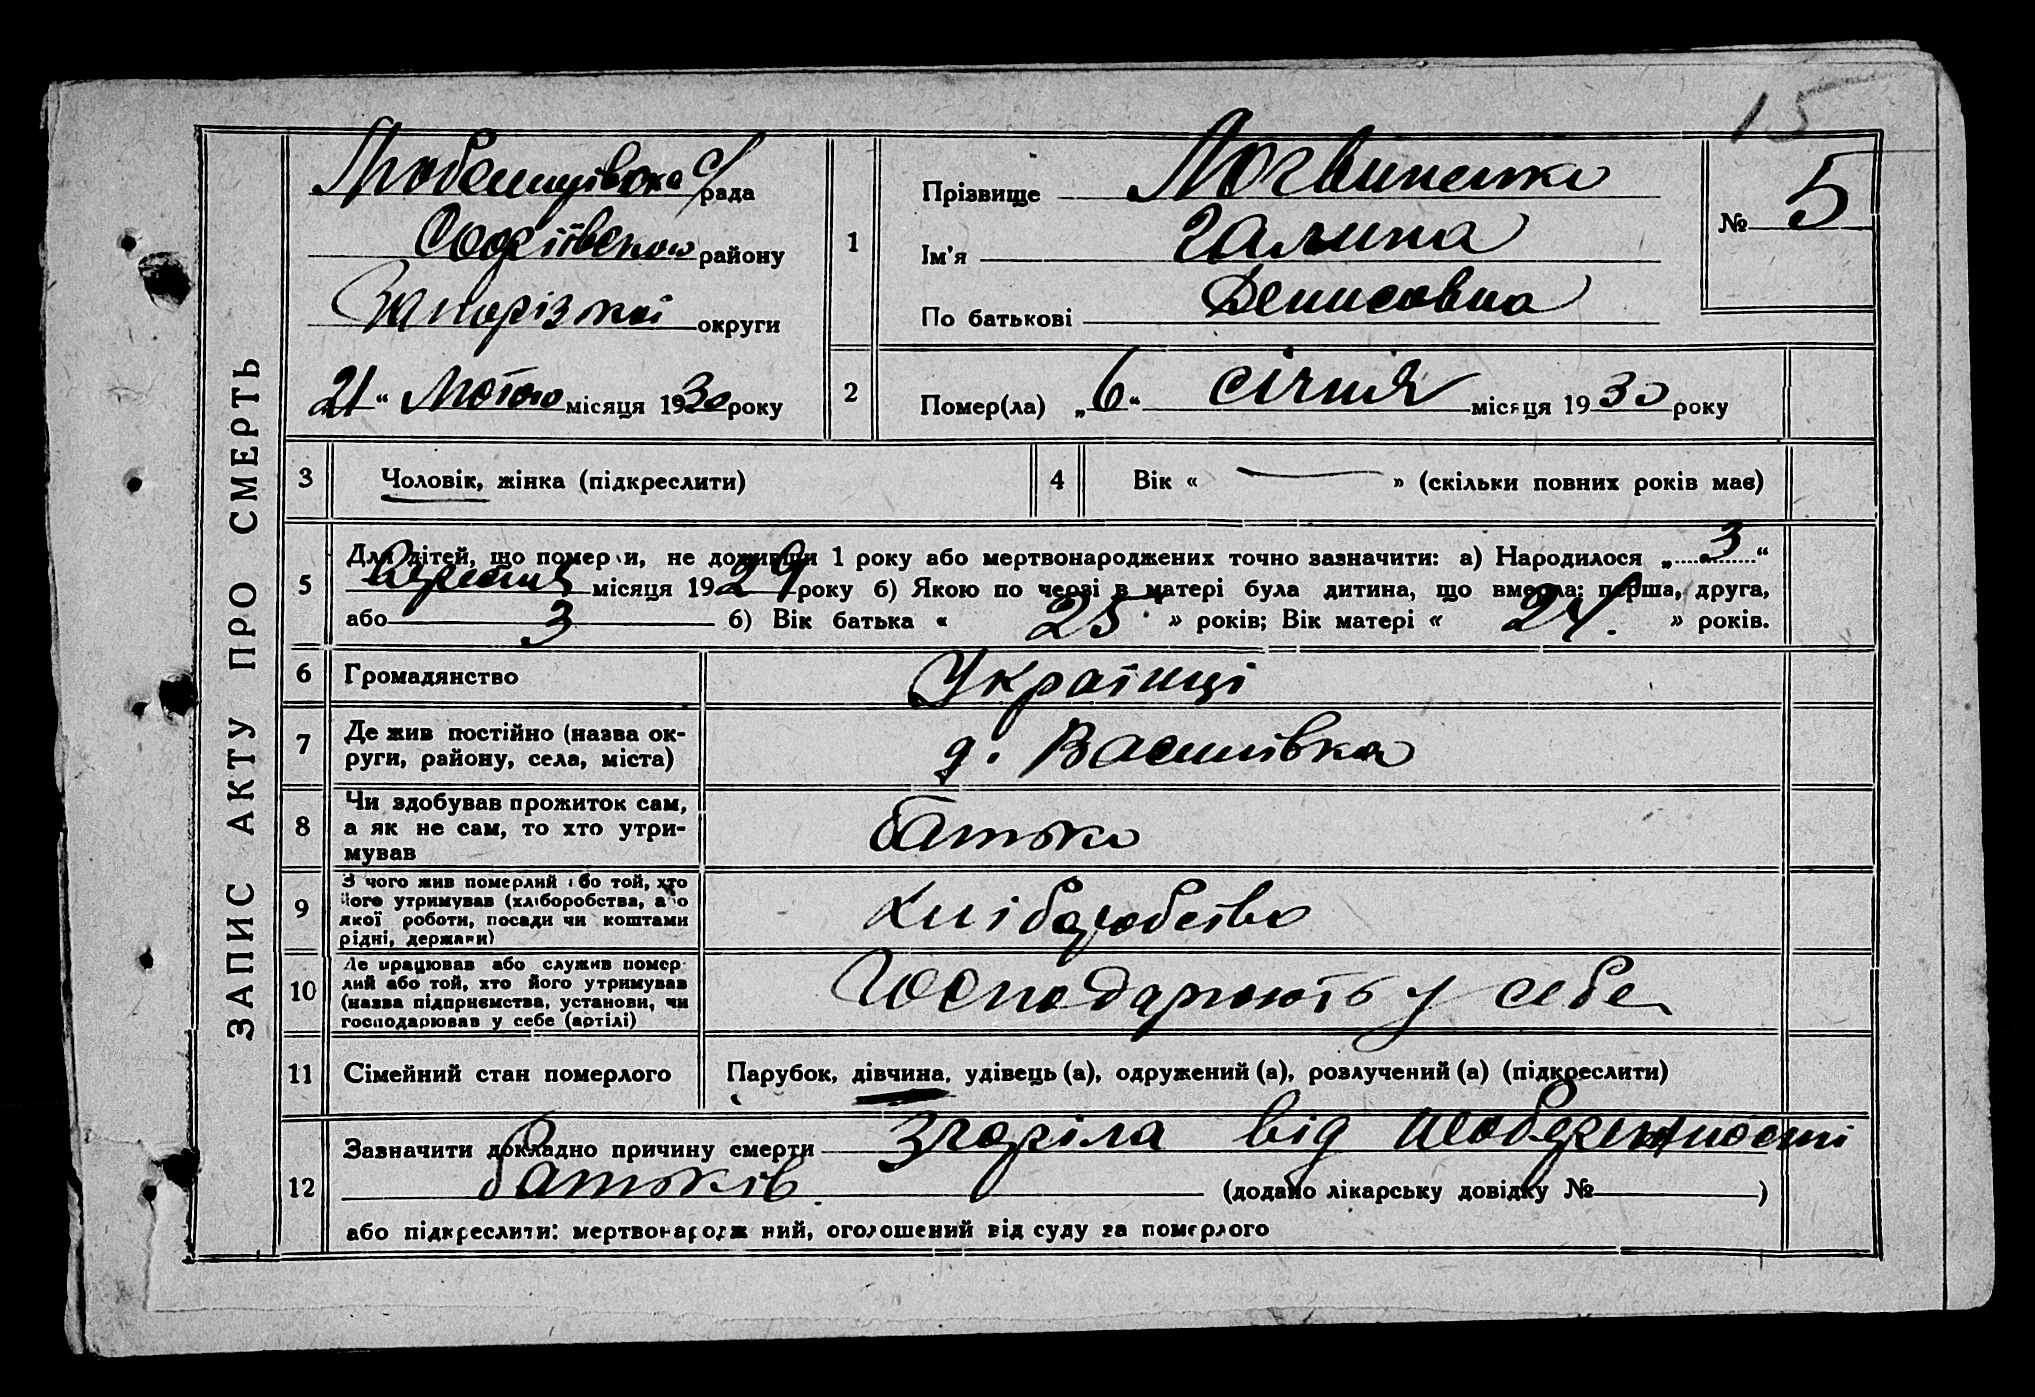 15
ЗАПИС АКТУ ПРО СМЕРТЬ
с/рада
Софіївского району
Запорізкої округи
21 " Лютого місяця 1930 року
1
Прізвище Логвиненко
Ім'я Галина
По батькові Денисовна
№ 5
2
Помер(ла) „ 6 “ січня місяця 1930 року
3 Чоловік, жінка (підкреслити)
4 Вік « — » (скільки повних років має)
5 Для дітей, що померли, не доживши 1 року або мертвонароджених точно зазначити: а) Народилося „ 3 “
вересня місяця 1929 року б) Якою по черзі в матері була дитина, що вмерла: перша, друга,
або 3 б) Вік батька « 25 » років; Вік матері « 24. » років.
6 Громадянство Українці
7 Де жив постійно (назва ок-
руги, району, села, міста) д. Василівка
8 Чи здобував прожиток сам,
а як не сам, то хто утри-
мував батько
9 З чого жив померлий або той, хто
його утримував (хліборобства, або
якої роботи, посади чи коштами
рідні, держави) хліборобство
10 Де працював або служив помер-
лий або той, хто його утримував
(назва підприємства, установи, чи
господарював у себе (артілі) Господарюють у себе
11 Сімейний стан померлого Парубок, дівчина, удівець (а), одружений (а), розлучений (а) (підкреслити)
12 Зазначити докладно причину смерти згоріла від необережности
батьків. (додано лікарську довідку № )
або підкреслити: мертвонароджений, оголошений від суду за померлого